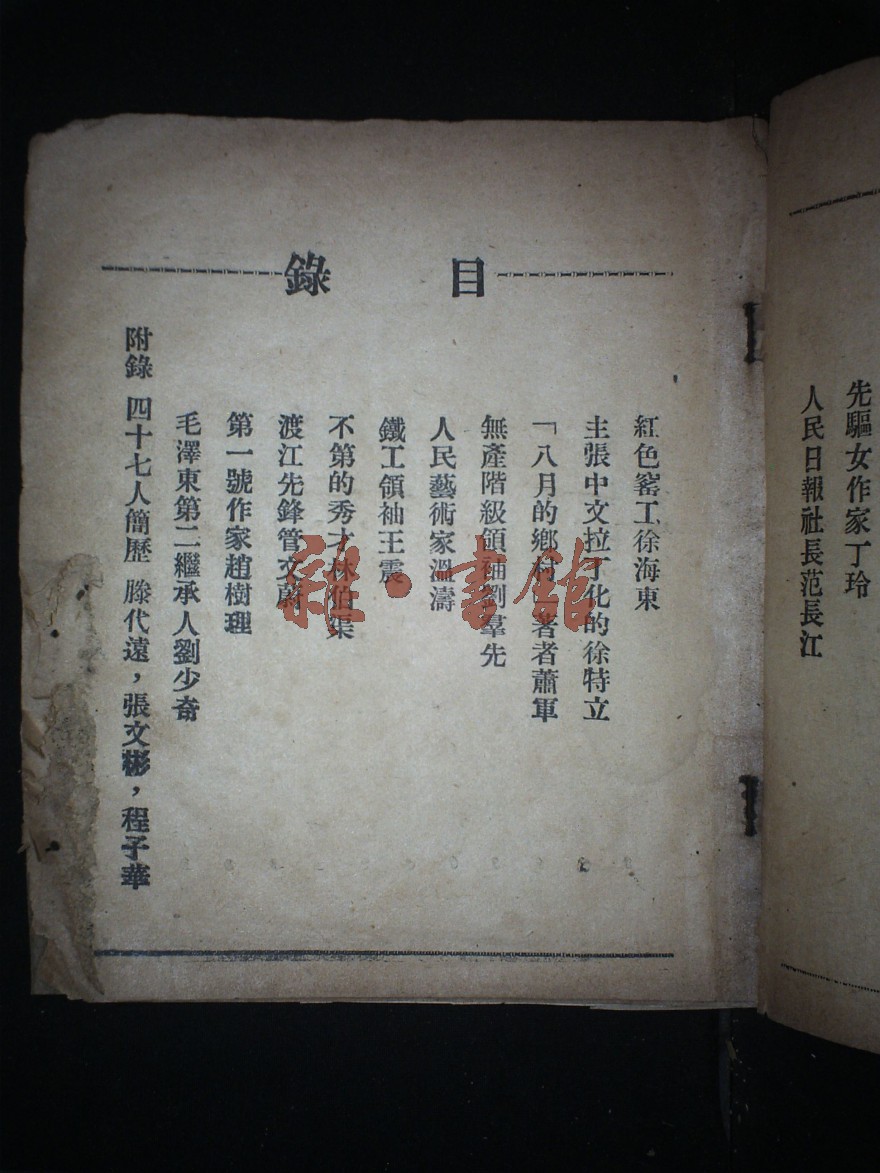 先驅女作家丁玲
人民日報社長范長江
目錄
紅色窰工徐海東
主張中文拉丁化的徐特立
「八月的鄉村」著者蕭軍
無產階級領袖劉羣先
人民藝術家溫濤
鐵工領袖王震
不第的秀才林伯渠
渡江先鋒管文蔚
第一號作家趙樹理
毛澤東第二繼承人劉少奇
附錄 四十七人簡歷 滕代遠，張文彬，程子華
雜·書館